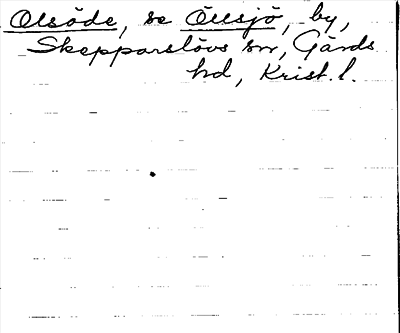 Olsöde, se Ollsjö, by,
Skepparslövs sn, Gärds
hd, Krist. l.